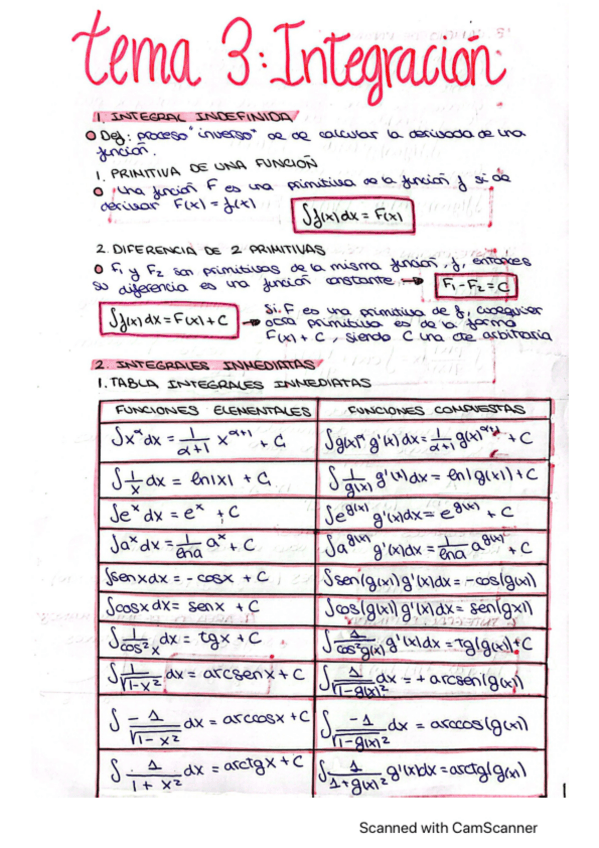 tema 3: Integración
1. INTEGRAL INDEFINIDA
Def: proceso "inverso" de de calcular la derivada de una
función.
1. PRIMITIVA DE UNA FUNCIÓN
una función F es una primitiva de la función f si de
derivar F(x) = f(x)
∫f(x)dx = F(x)
2. DIFERENCIA DE 2 PRIMITIVAS
F₁ y F₂ son primitivas de la misma función, f, entonces
su diferencia es una función constante → F₁-F₂=C
∫f(x)dx=F(x)+C → Si F es una primitiva de f, cualquier
otra primitiva es de la forma
F(x)+C, siendo C una cte arbitraria
2. INTEGRALES INMEDIATAS
1. TABLA INTEGRALES INMEDIATAS
FUNCIONES ELEMENTALES FUNCIONES COMPUESTAS
∫x^α dx = 1/(α+1) x^(α+1) + C ∫g(x)^α g'(x)dx = 1/(α+1) g(x)^(α+1) + C
∫1/x dx = ln|x| + C ∫1/g(x) g'(x)dx = ln|g(x)|+C
∫e^x dx = e^x + C ∫e^g(x) g'(x)dx = e^g(x) + C
∫a^x dx = 1/lna a^x + C ∫a^g(x) g'(x)dx = 1/lna a^g(x) + C
∫senxdx = -cosx + C ∫sen(g(x))g'(x)dx = -cos(g(x))
∫cosxdx = senx + C ∫cos(g(x))g'(x)dx = sen(gx))
∫1/cos²x dx = tgx + C ∫1/cos²g(x) g'(x)dx = tg(g(x))+C
∫1/√(1-x²) dx = arcsenx + C ∫1/√(1-g(x)²) dx = + arcsen(g(x))
∫-1/√(1-x²) dx = arccosx + C ∫-1/√(1-g(x)²) dx = arccos(g(x))
∫1/(1+x²) dx = arctgx + C ∫1/(1+g(x)²) g'(x)dx = arctg(g(x))
1
Scanned with CamScanner